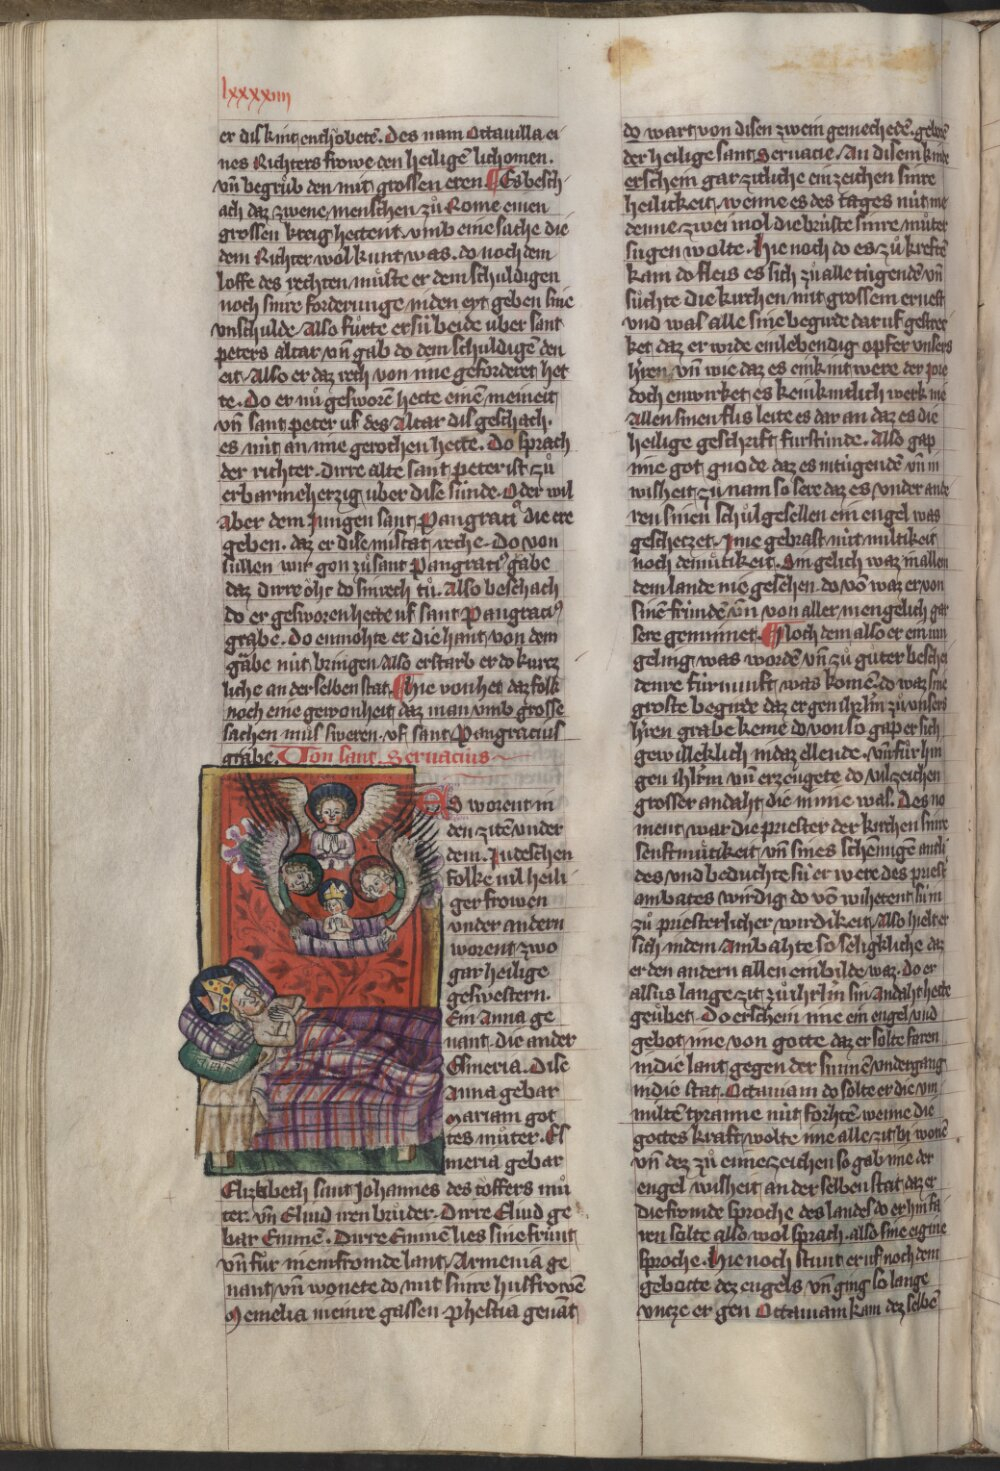 lxxxxiiii
er dis kint enthobetē. Des nam Octauilla ei
nes Richters frowe den heiligē lichomen.
vn̄ begrůb den mit grossen eren Es besch
ach daz zwene menschen zů Rome einen
grossen kreig hettent vmb eine sache die
dem Richter wol kunt was. do noch dem
loffe des rechten můste er dem schuldigen
noch sinre forderunge in den eyt geben sine
vnschulde. Also fůrte er sü beide uber sant
peters altar vn̄ gab do dem schuldigē den
eit. Also er daz rech von ime geforderet het
te. Do er nů gesworē hette einē meineit
vn̄ sant peter uf des Altar dis geschach.
es nüt an ime gerochen hette. Do sprach
der richter. Dirre alte sant peter ist zů
erbarmeherzig uber dise sünde. Oder wil
Aber dem Jungen sant Pangratiꝰ die ere
geben. daz er dise mistat reche. Do von
süllen wir gon zů sant Pangratiꝰ grabe
daz dirre öht do sin rech tů. Also beschach
do er gesworen hette uf sant Pangratiꝰ
grabe. Do enmohte er die hant von dem
grabe nüt bringen Also erstarb er do kurtz
liche an der selben stat. Hie von het daz folk
noch eine gewonheit daz man vmb grosse
sachen můs sweren. vf sant Pangracius
grabe. Von sant Seruacius
Es worent in
den zitē vnder
dem Judeschen
folke vil heili
ger frowen
vnder andern
worent zwo
gar heilige
geswestern.
Ein Anna ge
nant. die ander
Esmeria. Dise
Anna gebar
Mariam got
tes můter. Es
meria gebar
Elizabeth sant Johannes des töffers mů
ter. vn̄ Eliud iren brůder. Dirre Eliud ge
bar Emmē. Dirre Emmē lies sine frünt
vn̄ fůr in ein fromde lant Armenia ge
nant vn̄ wonete do mit sinre husfrowē
Memelia in einre gassen Phestia genāt
do wart von disen zwein gemechedē. geborē
der heilige sant Seruacie. An disem kinde
erschein gar zitliche ein zeichen sinre
heilickeit. wenne es des tages nüt me
denne zwei mol die brüste sinre můter
sugen wolte. Hie noch do es zů kreftē
kam do fleis es sich zů alle tůgendē vn̄
sůchte die kirchen mit grossem ernest
vnd was alle sine begirde dar uf gestrec
ket daz er wrde ein lebendig opfer vnsers
h'ren. vn̄ wie daz es ein kint were der jore
doch enwirket es kein kintlich werk me
Allen sinen flis leite es dar an daz es die
heilige geschrift fürstünde. Also gap
ime got gnode daz es in tügendē vn̄ in
wisheit zů nam so sere daz es vnder ande
ren sinen schůlgesellen ein engel was
geschetzet. Ime gebrast nüt miltikeit
noch demůtikeit. Sin gelich waz in allen
dem lande nie gesehen. do vō waz er von
sinē fründē vn̄ von aller mengelich gar
sere geminnet. Noch dem also er ein iun
geling was wordē vn̄ zů gůter beschei
denre fürnunft was komē. do waz sine
groste begirde daz er gen ihrlm zů vnsers
h'ren grabe keme do von so gap er sich
gewilleklich in daz ellende. vn̄ fůr hin
gen ihrlm vn̄ erzeugete do vil zeichen
grosser andaht die in ime was. Des no
ment war die priester der kirchen sinre
senftmůtikeit. vn̄ sines schēnigē antli
des vnd beduchte sü er were des priest
ambates wirdig do vō wihetent sü in
zů priesterlicher wirdikeit. Also hielt er
sich in dem Ambahte so seligkliche daz
er den andern allen ein bilde waz. do er
alsus lange zit zů ihrlm sin Andaht hette
geůbet. Do erschein ime ein engel vnd
gebot ime von gotte daz er solte faren
in die lant gegen der sunnē vndergang
in die stat. Octauiam do solte er die vn
miltē tyranne nüt förhtē. wenne die
gottes kraft wolte ime alle zit bi wonē
vn̄ dez zů eime zeichen so gab ime der
engel wisheit an der selben stat daz er
die fromde sproche des landes do er hin fa
ren solte also wol sprach. also sine eigine
sproche. Hie noch stunt er uf noch dem
gebotte dez engels vn̄ ging so lange
vntze er gen Octauiam kam dez selbē